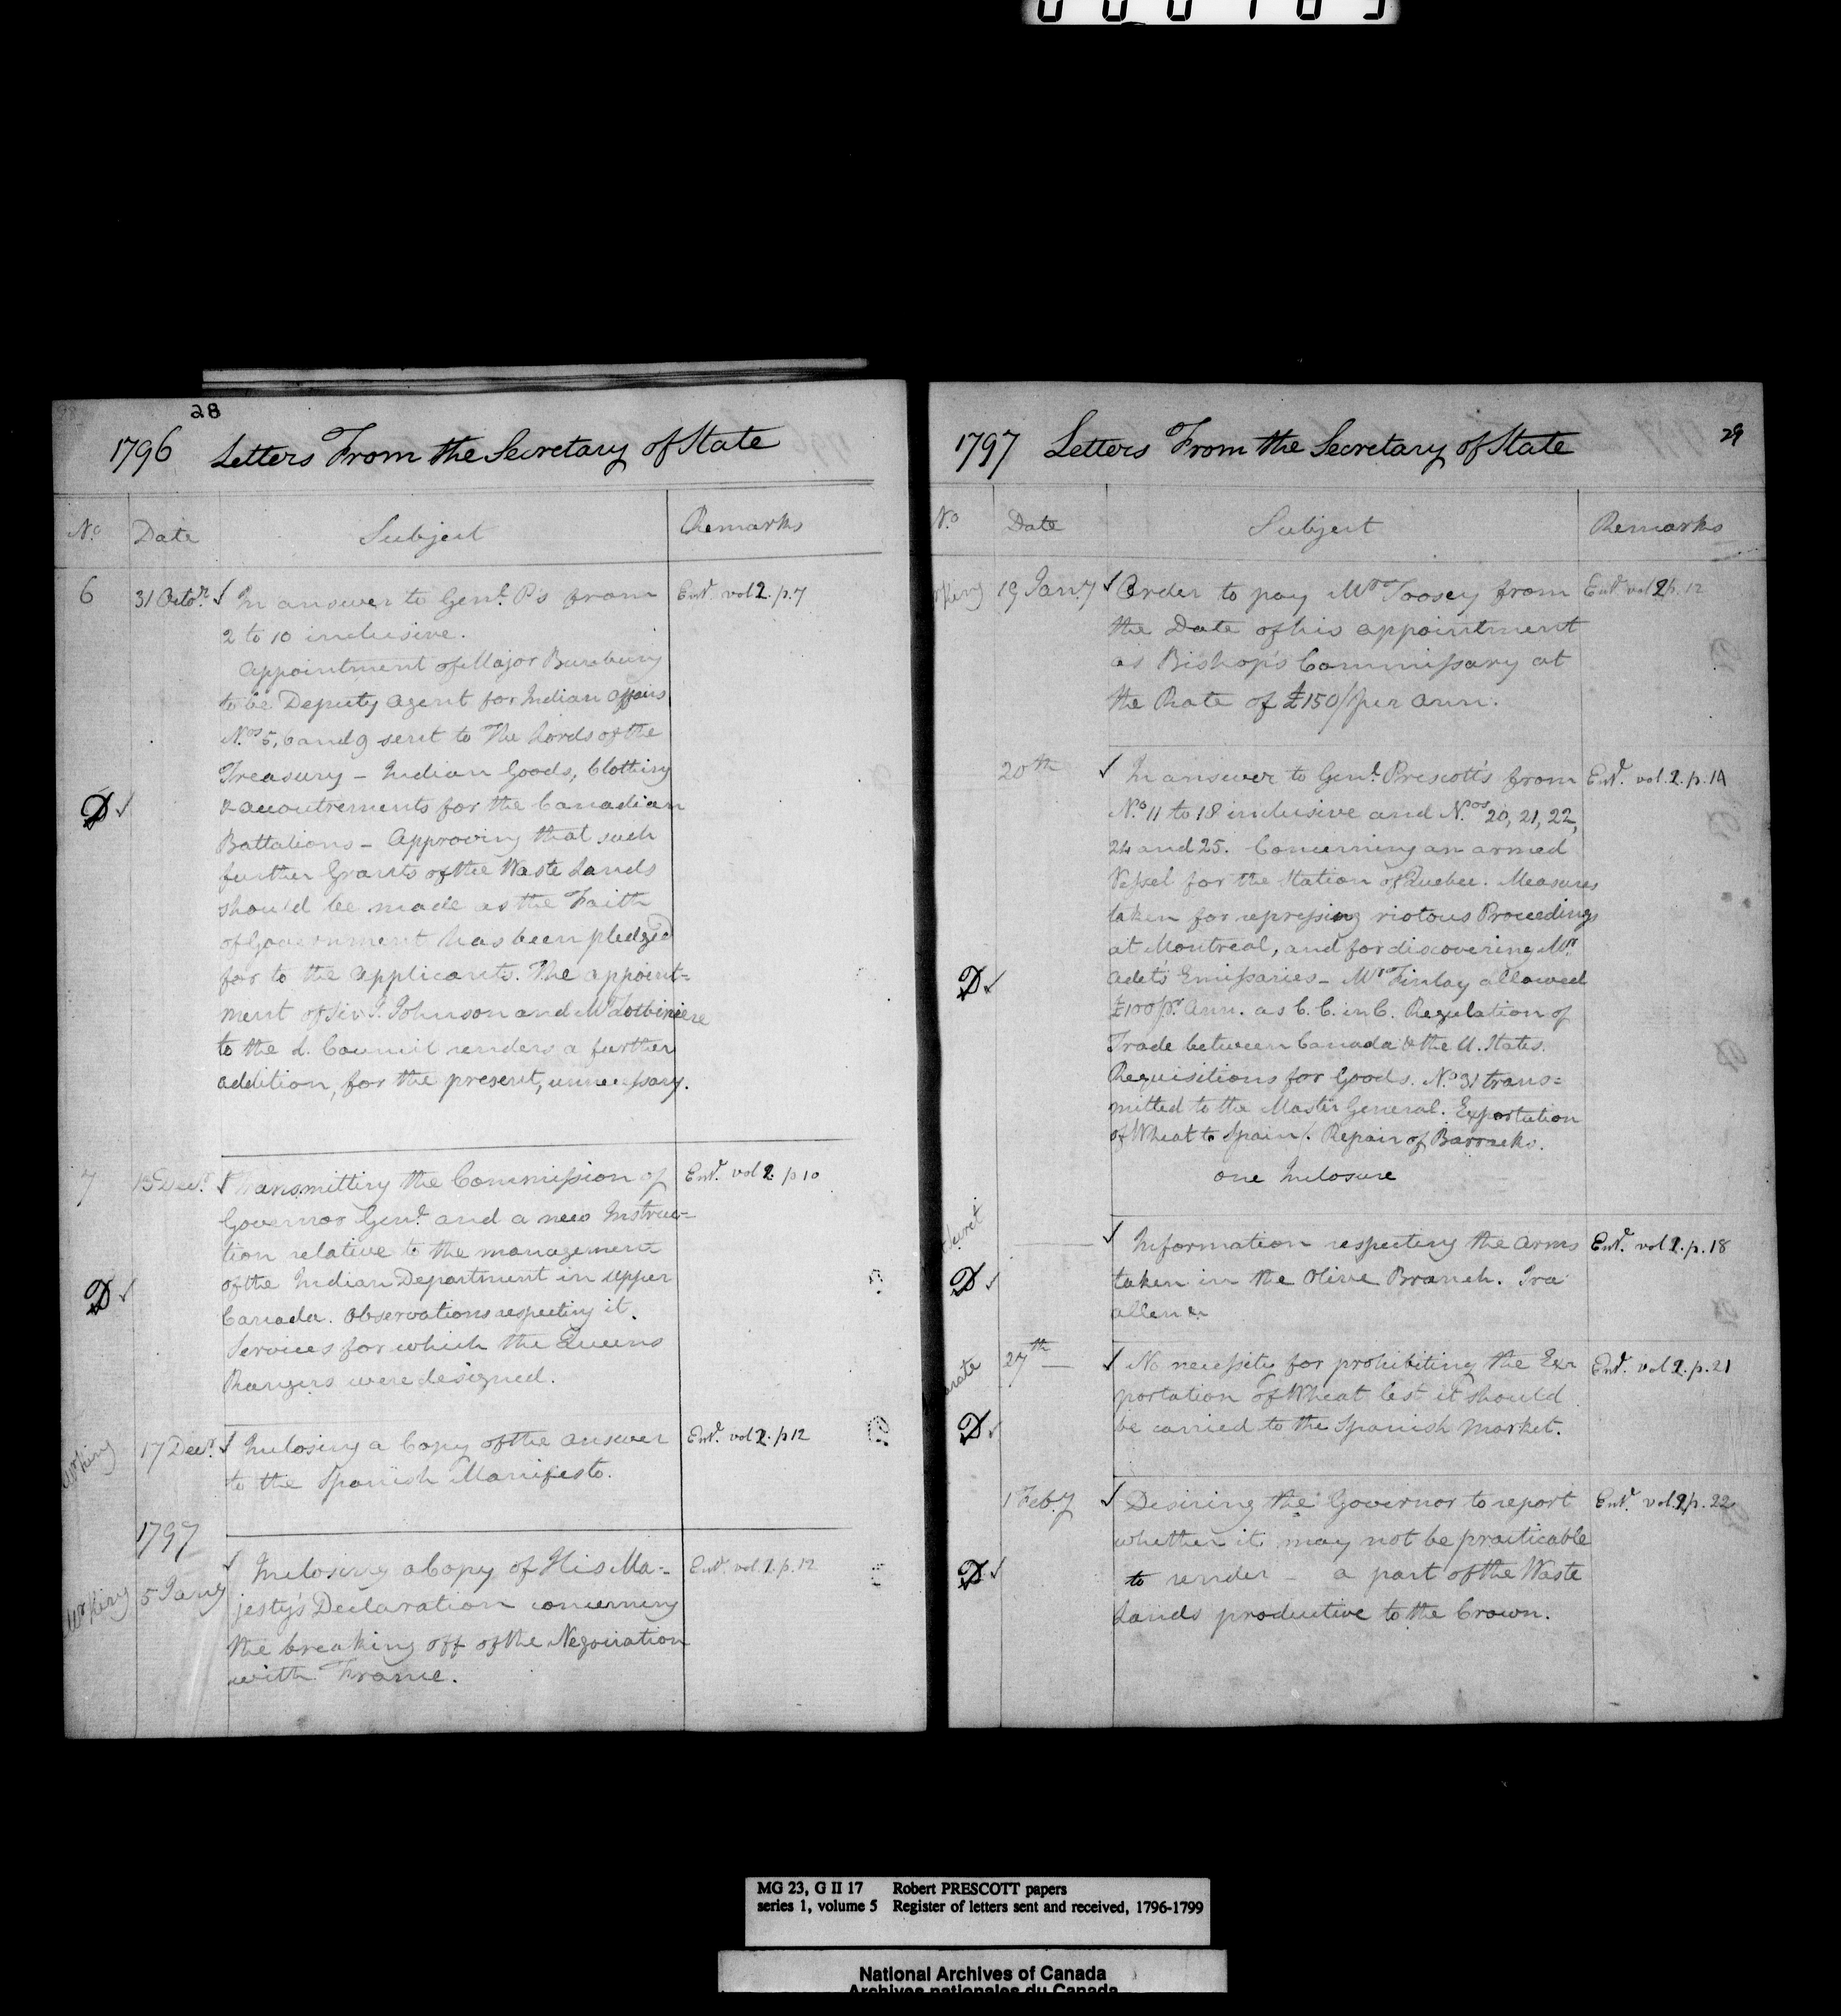 28
1796 Letters From the Secretary of State
No. Date Subject Remarks
6 31 Octor. ✓ In answer to Genl. P's from Entd. vol 2. p. 7
2 to 10 inclusive.
Appointment of Major
to be Deputy Agent for Indian Affairs
Nos. 5, 6 and 9 sent to The Lords of the
Treasury - Indian Goods, Clothing
D ✓ & accoutrements for the Canadian
Battalions - Approving that such
further Grants of the Waste Lands
should be made as the Faith
of Government has been pledged
for to the applicants. The appoint=
ment of Sir J. Johnson and Mr Lotbiniere
to the L. Council renders a further
addition, for the present, unnecessary.
7 Decr. ✓ Transmitting the Commission of Entd. vol 2. p 10
Governor Genl. and a new Instruc=
tion relative to the management
of the Indian Department in Upper
D ✓ Canada. Observations respecting it.
Services for which the Queens
Rangers were designed.
17 Decr. ✓ Inclosing a Copy of the answer Entd. vol 2. p 12
to the Spanish Manifesto.
1797
5 Jany ✓ Inclosing a Copy of His Ma= Entd. vol. 2. p. 12
jesty's Declaration concerning
the breaking off of the Negociation
with France.
29
1797 Letters From the Secretary of State
No. Date Subject Remarks
19 Jany ✓ Order to pay Mr Toosey from Entd. vol 2 p. 12
the Date of his appointment
as Bishop's Commissary at
the Rate of £150/ per ann.
20th ✓ In answer to Genl. Prescott's from Entd. vol. 2. p. 14
No. 11 to 18 inclusive and Nos. 20, 21, 22,
24 and 25. Concerning an armed
Vessel for the Station of Quebec. Measures
taken for repressing riotous Proceedings
at Montreal, and for discovering Mr.
D ✓ Adet's Emissaries - Mr Finlay allowed
£100 pr. Ann. as C. C. in C. Regulation of
Trade between Canada & the U. States.
Requisitions for Goods. No. 31 trans=
mitted to the Master General. Exportation
of Wheat to Spain/. Repair of Barracks.
one Inclosure
✓ Information respecting the arms Entd. vol 2. p. 18
D ✓ taken in the Olive Branch. Ira
allen &c
27th ✓ No necessity for prohibiting the Ex= Entd. vol 2. p. 21
portation of Wheat lest it should
D ✓ be carried to the Spanish Market.
1 Feby ✓ Desiring the Governor to report Entd. vol. 2 p. 22
whether it may not be practicable
D ✓ to render - a part of the Waste
Lands productive to the Crown.
MG 23, G II 17 Robert PRESCOTT papers
series 1, volume 5 Register of letters sent and received, 1796-1799
National Archives of Canada
Archives nationales du Canada